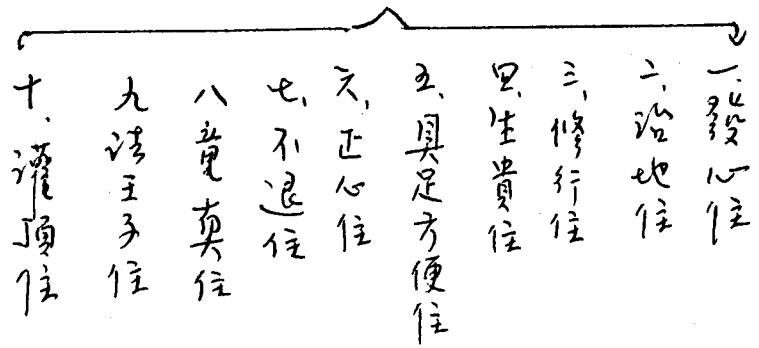 一、發心住
二、治地住
三、修行住
四、生貴住
五、具足方便住
六、正心住
七、不退住
八童真住
九法王子住
十、灌頂住